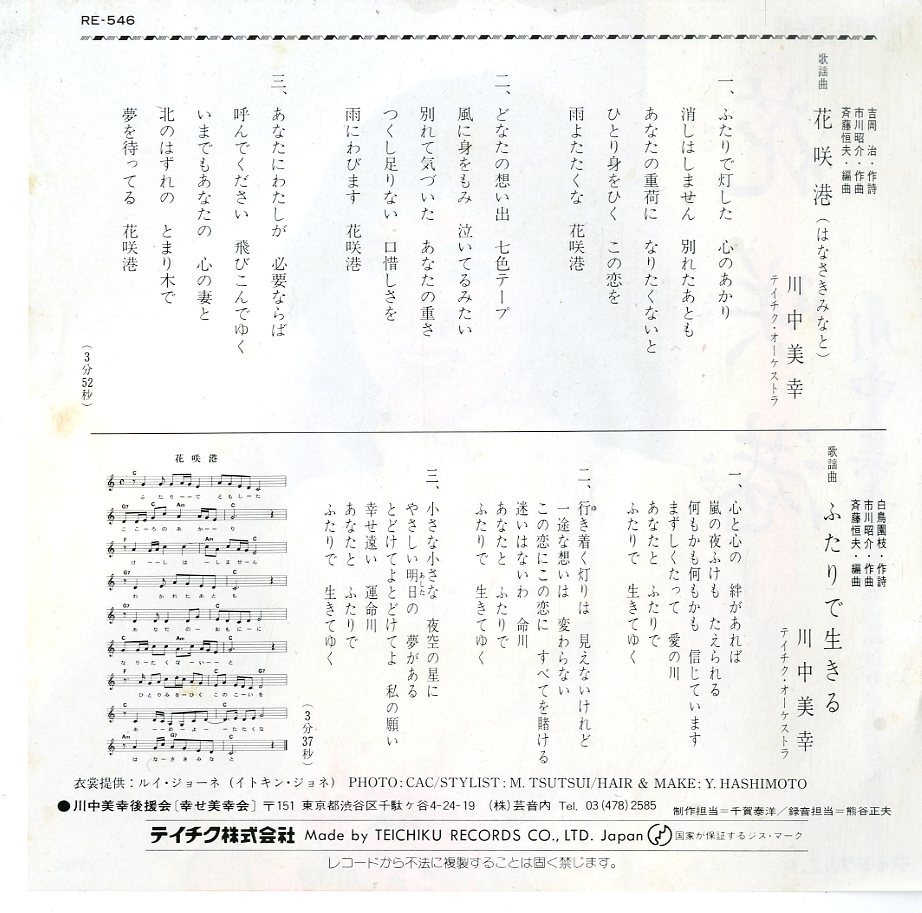 RE-546
吉岡 治・作詩
市川昭介・作曲
斉藤恒夫・編曲
歌謡曲
花咲港(はなさきみなと)
川中美幸
テイチク・オーケストラ
一、ふたりで灯した 心のあかり
消しはしません 別れたあとも
あなたの重荷に なりたくないと
ひとり身をひく この恋を
雨よたたくな 花咲港
二、どなたの想い出 七色テープ
風に身をもみ 泣いてるみたい
別れて気づいた あなたの重さ
つくし足りない 口惜しさを
雨にわびます 花咲港
三、あなたにわたしが 必要ならば
呼んでください 飛びこんでゆく
いまでもあなたの 心の妻と
北のはずれの とまり木で
夢を待ってる 花咲港
(3分52秒)
白鳥園枝・作詩
市川昭介・作曲
斉藤恒夫・編曲
歌謡曲
ふたりで生きる
川中美幸
テイチク・オーケストラ
一、心と心の 絆があれば
嵐の夜ふけも たえられる
何もかも何もかも 信じています
まずしくたって 愛の川
あなたと ふたりで
ふたりで 生きてゆく
二、行き着く灯りは 見えないけれど
ゆ
一途な想いは 変わらない
この恋にこの恋に すべてを賭ける
迷いはないわ 命川
あなたと ふたりで
ふたりで 生きてゆく
三、小さな小さな 夜空の星に
やさしい明日の 夢がある
あした
とどけてよとどけてよ 私の願い
幸せ遠い 運命川
あなたと ふたりで
ふたりで 生きてゆく
(3分37秒)
花咲港
ふたりーーで ともしーた
こころのあかーり
けーーしはーしません
わかれたあとも
あなたのーおもにーに
なりーたくなーいーーと
ひとりみをーひく このこーいを
あーーめーよーーたたくな
はなさきみなと
衣裳提供:ルイ・ジョーネ(イトキン・ジョネ) PHOTO:CAC/STYLIST:M. TSUTSUI/HAIR & MAKE:Y. HASHIMOTO
●川中美幸後援会〔幸せ美幸会〕〒151 東京都渋谷区千駄ケ谷4-24-19 (株)芸音内 Tel. 03(478)2585
制作担当=千賀泰洋/録音担当=熊谷正夫
テイチク株式会社 Made by TEICHIKU RECORDS CO., LTD. Japan 国家が保証するジス・マーク
レコードから不法に複製することは固く禁じます。